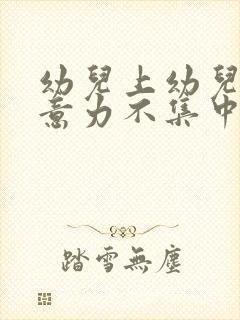 幼兒上幼兒
意力不集中
踏雪無塵